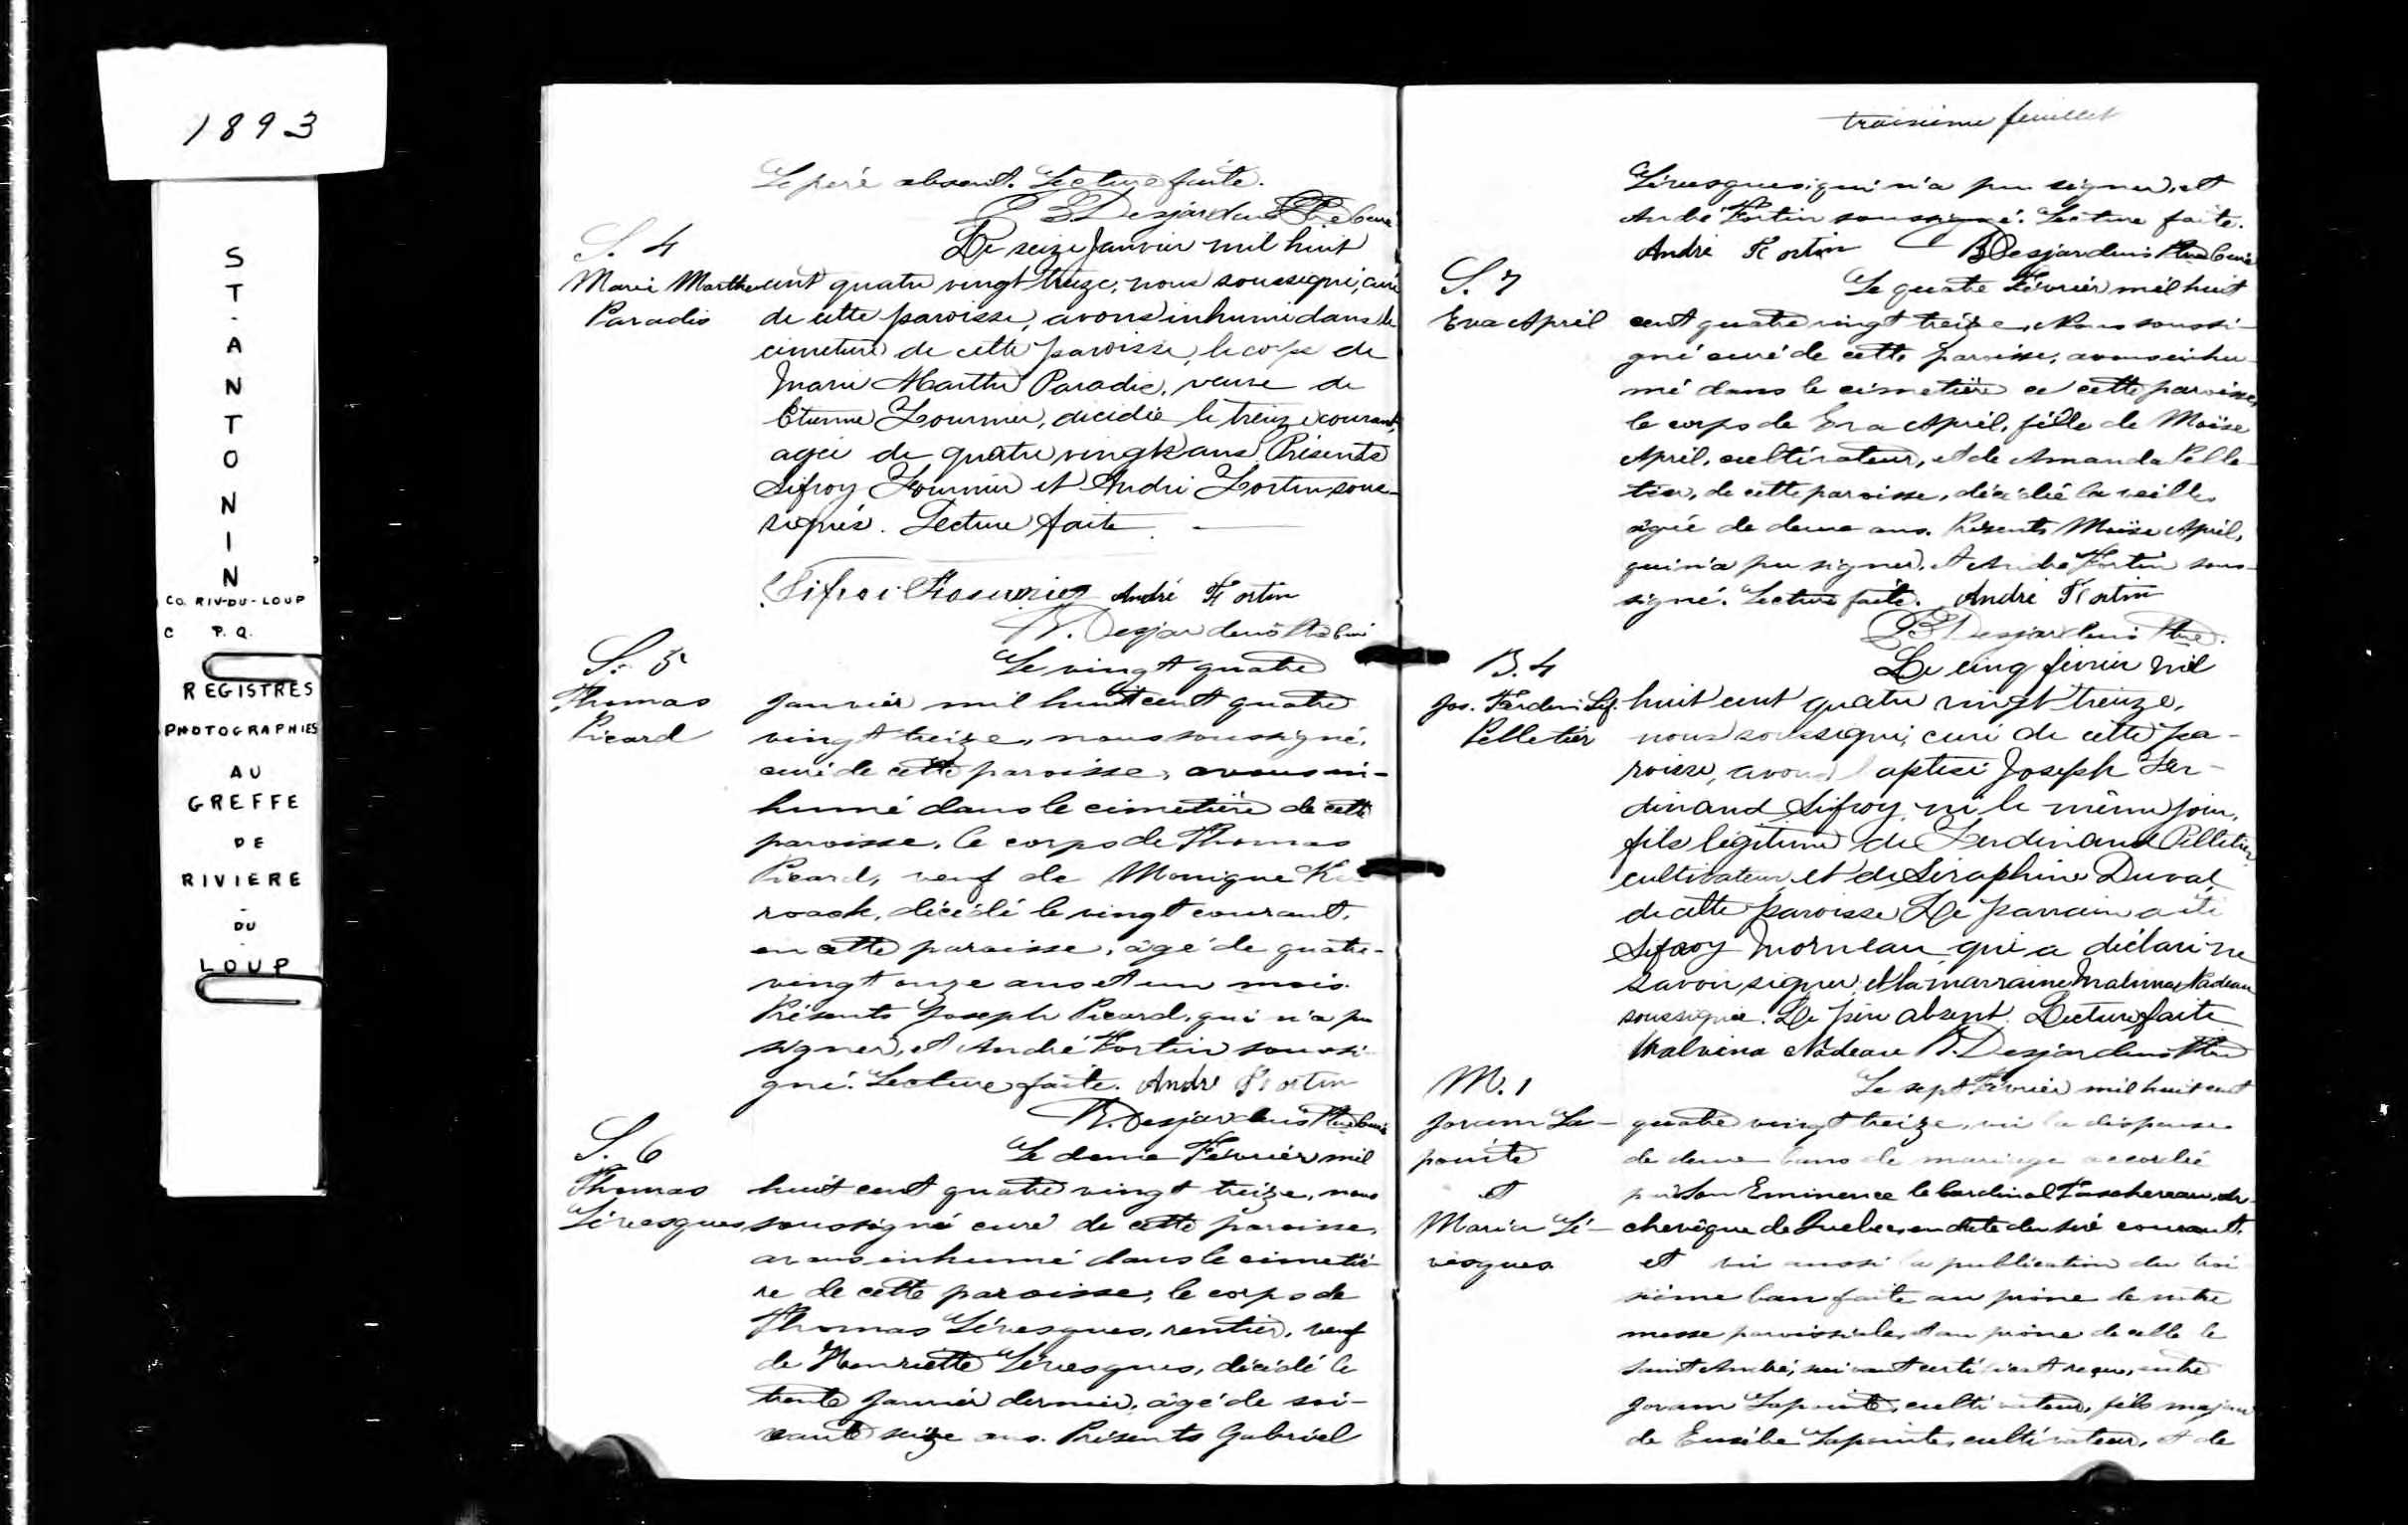 1893
ST-ANTONIN
CO. RIV-DU-LOUP
C P.Q.
REGISTRES
PHOTOGRAPHIES
AU
GREFFE
DE
RIVIERE
-
DU
-
LOUP
Le père absent. Lecture faite.
B Desjardins Ptre Curé
S. 4
Marie Marthe
Paradis
Le seize Janvier mil huit
cent quatre vingt treize, nous soussigné, curé
de cette paroisse, avons inhumé dans le
cimetière de cette paroisse, le corps de
Marie Marthe Paradis, veuve de
Etienne Fournier, décédée le treize courant,
agée de quatre vingt ans. Présents
Sifroy Fournier et André Fortin, sous-
signés. Lecture faite.
Sifroi Fournier André Fortin
B. Desjardins Ptre Curé
S. 5
Thomas
Picard
Le vingt quatre
Janvier mil huit cent quatre
vingt treize, nous soussigné,
curé de cette paroisse, avons in-
humé dans le cimetière de cette
paroisse, le corps de Thomas
Picard, veuf de Monique
roack, décédé le vingt courant,
en cette paroisse, âgé de quatre-
vingt onze ans et un mois.
Présents Joseph Picard, qui n'a pu
signer, et André Fortin soussi-
gné. Lecture faite. André Fortin
B. Desjardins Ptre Curé
S. 6
Thomas
Lévesques
Le deux Février mil
huit cent quatre vingt treize, nous
soussigné curé de cette paroisse,
avons inhumé dans le cimetiè-
re de cette paroisse, le corps de
Thomas Lévesques, rentier, veuf
de Henriette Lévesques, décédé le
trente Janvier dernier, âgé de soi-
xante seize ans. Présents Gabriel
troisième feuillet
Lévesques, qui n'a pu signer, et
André Fortin soussigné. Lecture faite.
André Fortin B Desjardins Ptre Curé
S. 7
Eva April
Le quatre Février mil huit
cent quatre vingt treize, Nous soussi-
gné curé de cette paroisse, avons inhu-
mé dans le cimetière de cette paroisse,
le corps de Eva April, fille de Moïse
April, cultivateur, et de Amanda Pelle-
tier, de cette paroisse, décédée la veille,
agée de deux ans. Présents Moïse April,
qui n'a pu signer, et André Fortin sous-
signé. Lecture faite. André Fortin
B Desjardins Ptre.
B. 4
Jos. Ferdin. Sif.
Pelletier
Le cinq février mil
huit cent quatre vingt treize,
nous soussigné, curé de cette pa-
roisse, avons baptisé Joseph Fer-
dinand Sifroy, né le même jour,
fils légitime de Ferdinand Pelletier
cultivateur, et de Séraphine Duval,
de cette paroisse Le parrain a été
Sifroy Morneau qui a déclaré ne
savoir signer, et la marraine Malvina Nadeau
soussignée. Le père absent. Lecture faite
Malvina Nadeau B. Desjardins Ptre
M. 1
Joram La-
pointe
et
Maria Lé-
vesques
Le sept Février mil huit cent
quatre vingt treize, vu la dispense
de deux bans de mariage accordée
par Son Eminence le Cardinal Taschereau, Ar-
chevêque de Quebec, en date du six courant,
et vu aussi la publication du troi-
sième ban faite au prône de notre
messe paroissiale, et au prône de celle de
Saint André, suivant certificat reçu, entre
Joram Lapointe, cultivateur, fils majeur
de Eusèbe Lapointe, cultivateur, et de